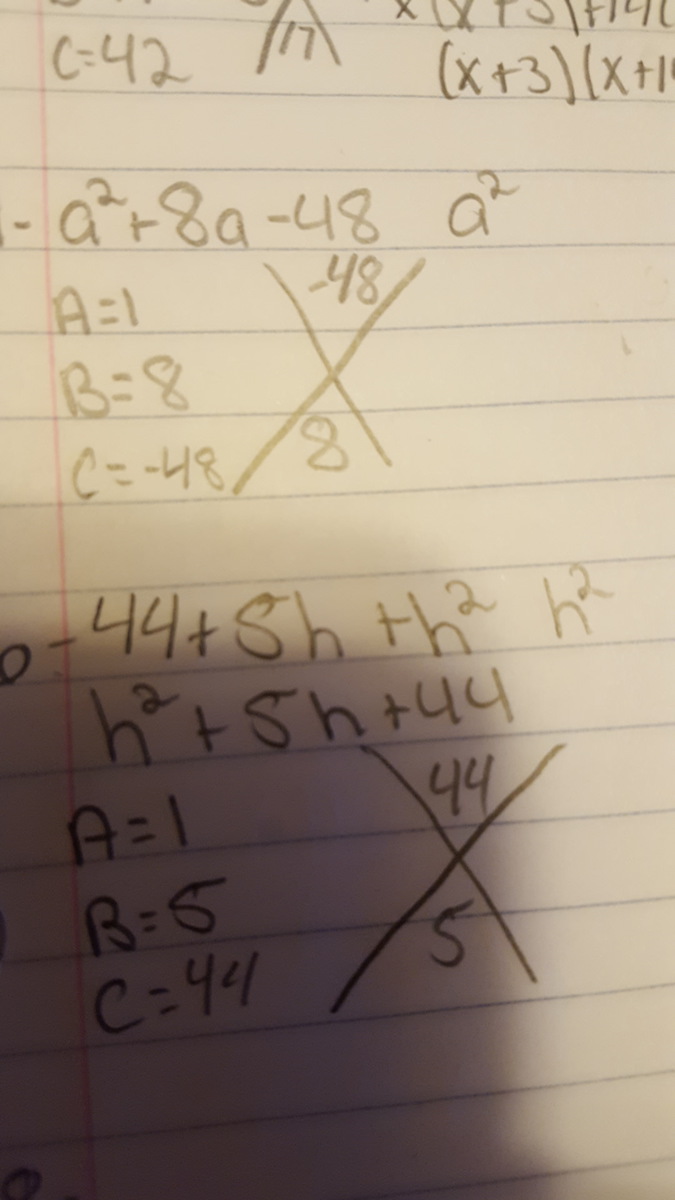 C=42 17 (x+3)(x+1
a²+8a-48 a²
A=1 -48
B=8
C=-48 8
-44+5h+h² h²
h²+5h+44
A=1 44
B=5 5
C=44